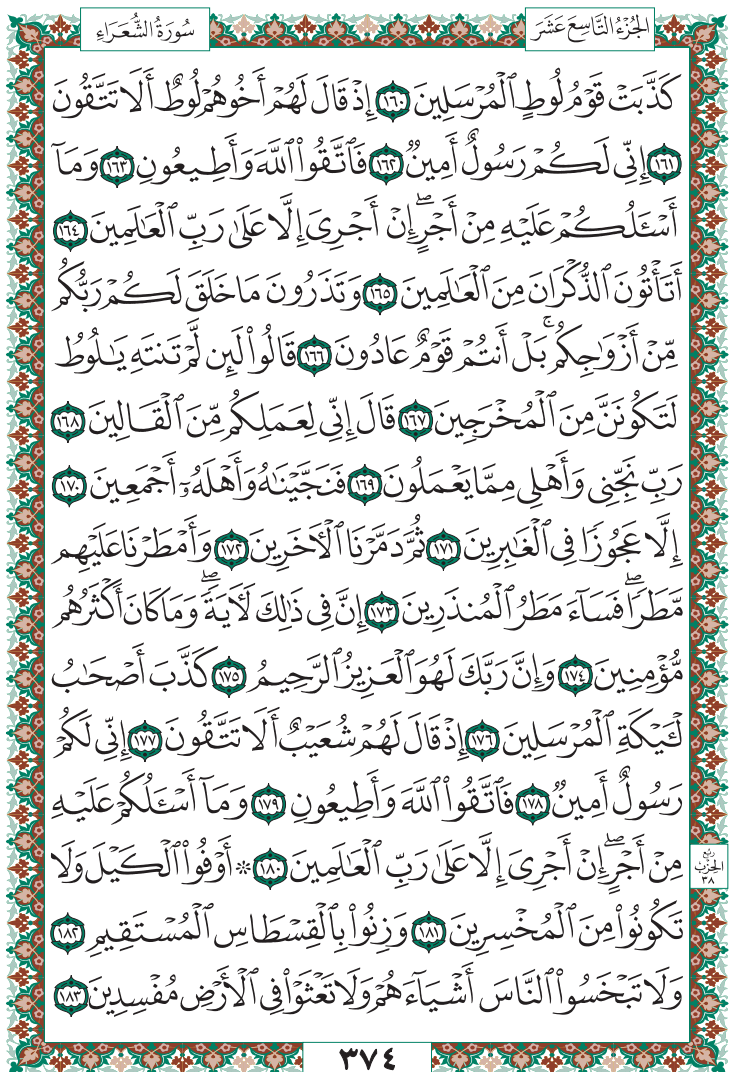 الجُزْءُ التَّاسِعَ عَشَرَ
سُورَةُ الشُّعَرَاءِ
كَذَّبَتۡ قَوۡمُ لُوطٍ ٱلۡمُرۡسَلِينَ ١٦٠ إِذۡ قَالَ لَهُمۡ أَخُوهُمۡ لُوطٌ أَلَا تَتَّقُونَ
١٦١ إِنِّي لَكُمۡ رَسُولٌ أَمِينٞ ١٦٢ فَٱتَّقُواْ ٱللَّهَ وَأَطِيعُونِ ١٦٣ وَمَآ
أَسۡـَٔلُكُمۡ عَلَيۡهِ مِنۡ أَجۡرٍۖ إِنۡ أَجۡرِيَ إِلَّا عَلَىٰ رَبِّ ٱلۡعَٰلَمِينَ ١٦٤
أَتَأۡتُونَ ٱلذُّكۡرَانَ مِنَ ٱلۡعَٰلَمِينَ ١٦٥ وَتَذَرُونَ مَا خَلَقَ لَكُمۡ رَبُّكُم
مِّنۡ أَزۡوَٰجِكُمۚ بَلۡ أَنتُمۡ قَوۡمٌ عَادُونَ ١٦٦ قَالُواْ لَئِن لَّمۡ تَنتَهِ يَٰلُوطُ
لَتَكُونَنَّ مِنَ ٱلۡمُخۡرَجِينَ ١٦٧ قَالَ إِنِّي لِعَمَلِكُم مِّنَ ٱلۡقَالِينَ ١٦٨
رَبِّ نَجِّنِي وَأَهۡلِي مِمَّا يَعۡمَلُونَ ١٦٩ فَنَجَّيۡنَٰهُ وَأَهۡلَهُۥٓ أَجۡمَعِينَ ١٧٠
إِلَّا عَجُوزٗا فِي ٱلۡغَٰبِرِينَ ١٧١ ثُمَّ دَمَّرۡنَا ٱلۡأٓخَرِينَ ١٧٢ وَأَمۡطَرۡنَا عَلَيۡهِم
مَّطَرٗاۖ فَسَآءَ مَطَرُ ٱلۡمُنذَرِينَ ١٧٣ إِنَّ فِي ذَٰلِكَ لَأٓيَةٗۖ وَمَا كَانَ أَكۡثَرُهُم
مُّؤۡمِنِينَ ١٧٤ وَإِنَّ رَبَّكَ لَهُوَ ٱلۡعَزِيزُ ٱلرَّحِيمُ ١٧٥ كَذَّبَ أَصۡحَٰبُ
لۡـَٔيۡكَةِ ٱلۡمُرۡسَلِينَ ١٧٦ إِذۡ قَالَ لَهُمۡ شُعَيۡبٌ أَلَا تَتَّقُونَ ١٧٧ إِنِّي لَكُمۡ
رَسُولٌ أَمِينٞ ١٧٨ فَٱتَّقُواْ ٱللَّهَ وَأَطِيعُونِ ١٧٩ وَمَآ أَسۡـَٔلُكُمۡ عَلَيۡهِ
مِنۡ أَجۡرٍۖ إِنۡ أَجۡرِيَ إِلَّا عَلَىٰ رَبِّ ٱلۡعَٰلَمِينَ ١٨٠ ۞ أَوۡفُواْ ٱلۡكَيۡلَ وَلَا
رُبْعُ الحِزْبِ ٣٨
تَكُونُواْ مِنَ ٱلۡمُخۡسِرِينَ ١٨١ وَزِنُواْ بِٱلۡقِسۡطَاسِ ٱلۡمُسۡتَقِيمِ ١٨٢
وَلَا تَبۡخَسُواْ ٱلنَّاسَ أَشۡيَآءَهُمۡ وَلَا تَعۡثَوۡاْ فِي ٱلۡأَرۡضِ مُفۡسِدِينَ ١٨٣
٣٧٤